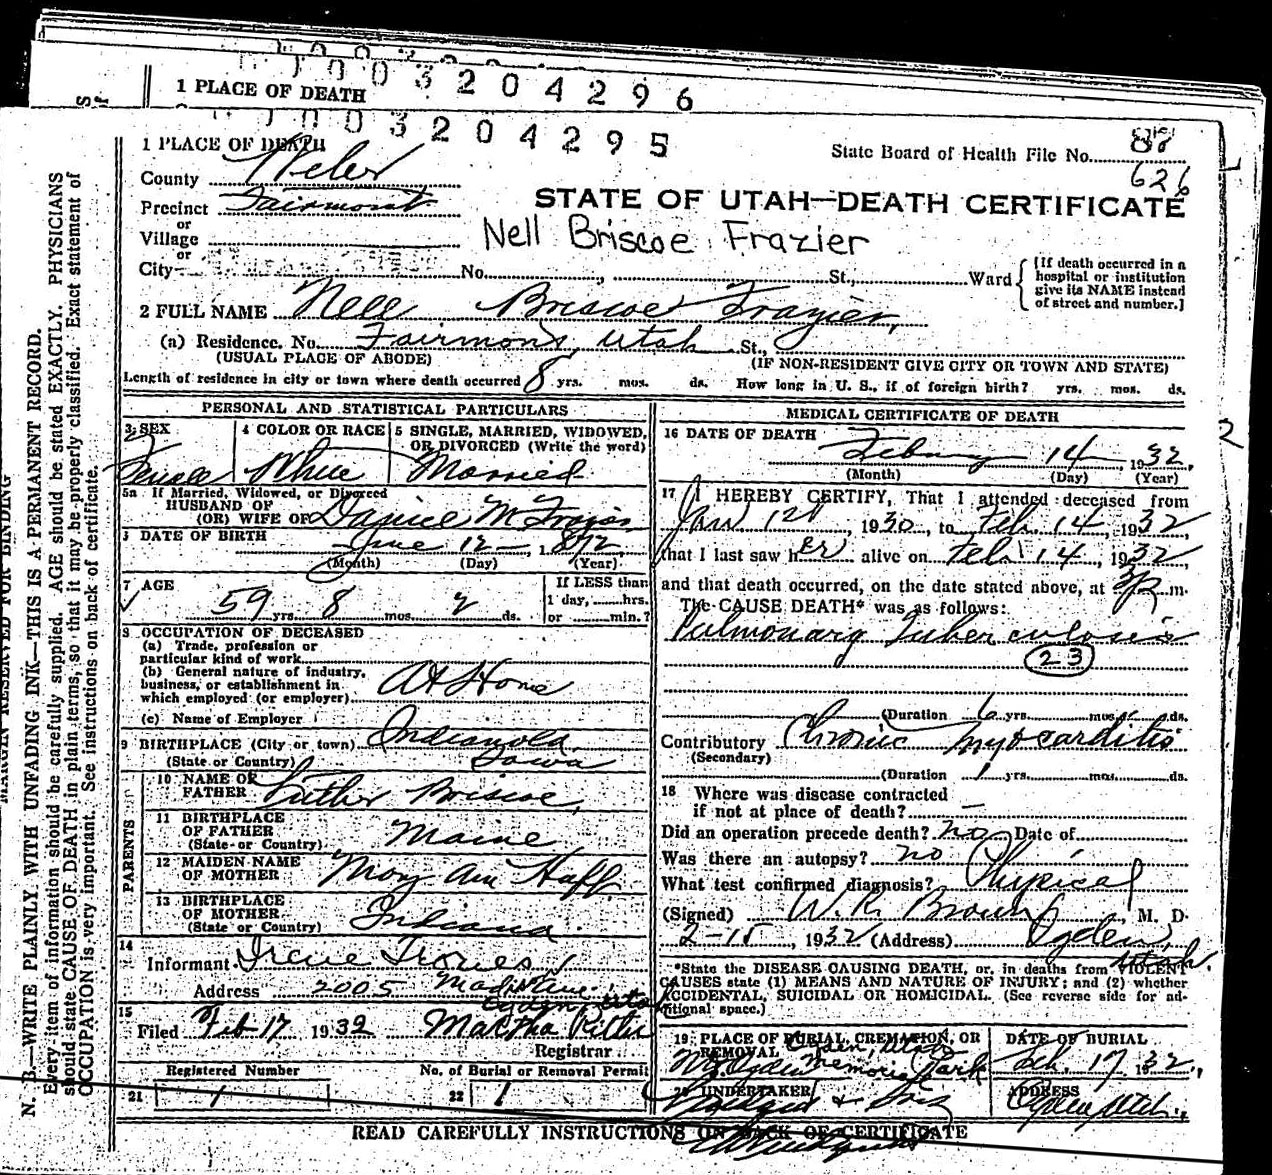 1 PLACE OF DEATH
003204296
003204295
1 PLACE OF DEATH
State Board of Health File No. 88
626
County Weber
STATE OF UTAH—DEATH CERTIFICATE
Precinct Fairmont
or
Village
Nell Briscoe Frazier
or
City No. , St., Ward
[If death occurred in a hospital or institution give its NAME instead of street and number.]
2 FULL NAME Nell Briscoe Frazier,
(a) Residence. No. Fairmont, Utah St.,
(USUAL PLACE OF ABODE) (IF NON-RESIDENT GIVE CITY OR TOWN AND STATE)
Length of residence in city or town where death occurred 8 yrs. mos. ds. How long in U. S., if of foreign birth? yrs. mos. ds.
PERSONAL AND STATISTICAL PARTICULARS
3 SEX 4 COLOR OR RACE 5 SINGLE, MARRIED, WIDOWED, OR DIVORCED (Write the word)
Female White Married
5a If Married, Widowed, or Divorced
HUSBAND OF
(OR) WIFE OF Daniel M Frazier
6 DATE OF BIRTH June 12 1872
(Month) (Day) (Year)
7 AGE 59 yrs. 8 mos. 2 ds.
If LESS than 1 day, hrs. or min.?
8 OCCUPATION OF DECEASED
(a) Trade, profession or
particular kind of work
(b) General nature of industry,
business, or establishment in
which employed (or employer) At Home
(c) Name of Employer
9 BIRTHPLACE (City or town) Indianola
(State or Country) Iowa
PARENTS
10 NAME OF FATHER Luther Briscoe,
11 BIRTHPLACE OF FATHER (State or Country) Maine
12 MAIDEN NAME OF MOTHER Mary Ann Huff
13 BIRTHPLACE OF MOTHER (State or Country) Indiana
14
Informant Irene Trones
Address 2005 Madison Ogden Utah
15
Filed Feb 17 1932 Martha Ritter
Registrar
Registered Number No. of Burial or Removal Permit
21 1 22 1
MEDICAL CERTIFICATE OF DEATH
16 DATE OF DEATH
February 14 1932,
(Month) (Day) (Year)
17 I HEREBY CERTIFY, That I attended deceased from
Jan 1st, 1930, to Feb. 14, 1932
that I last saw her alive on Feb 14, 1932
and that death occurred, on the date stated above, at 3 P. m.
The CAUSE DEATH* was as follows:
Pulmonary Tuberculosis
23
(Duration 6 yrs. mos. ds.
Contributory Chronic myocarditis
(Secondary)
(Duration 1 yrs. mos. ds.
18 Where was disease contracted
if not at place of death? —
Did an operation precede death? no Date of
Was there an autopsy? no
What test confirmed diagnosis? Physical
(Signed) W. R. Brown, M. D.
2-15, 1932 (Address) Ogden, Utah.
*State the DISEASE CAUSING DEATH, or, in deaths from VIOLENT
CAUSES state (1) MEANS AND NATURE OF INJURY; and (2) whether
ACCIDENTAL, SUICIDAL OR HOMICIDAL. (See reverse side for additional space.)
19 PLACE OF BURIAL, CREMATION, OR REMOVAL DATE OF BURIAL
Ogden, Utah
Memorial Park Feb. 17 1932,
20 UNDERTAKER ADDRESS
& Sons Ogden, Utah.,
READ CAREFULLY INSTRUCTIONS ON BACK OF CERTIFICATE
MARGIN RESERVED FOR BINDING
N. B.—WRITE PLAINLY WITH UNFADING INK—THIS IS A PERMANENT RECORD.
Every item of information should be carefully supplied. AGE should be stated EXACTLY. PHYSICIANS
should state CAUSE OF DEATH in plain terms, so that it may be properly classified. Exact statement of
OCCUPATION is very important. See instructions on back of certificate.